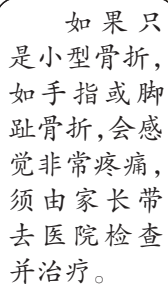 如果只
是小型骨折,
如手指或脚
趾骨折,会感
觉非常疼痛,
须由家长带
去医院检查
并治疗。